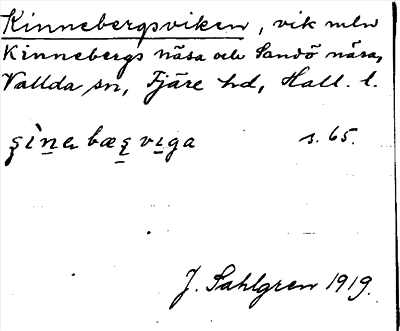 Kinnebergsviken, vik mln
Kinnebergs näsa och Sandö näsa,
Vallda sn, Fjäre hd, Hall. l.
s. 65.
J. Sahlgren 1919.